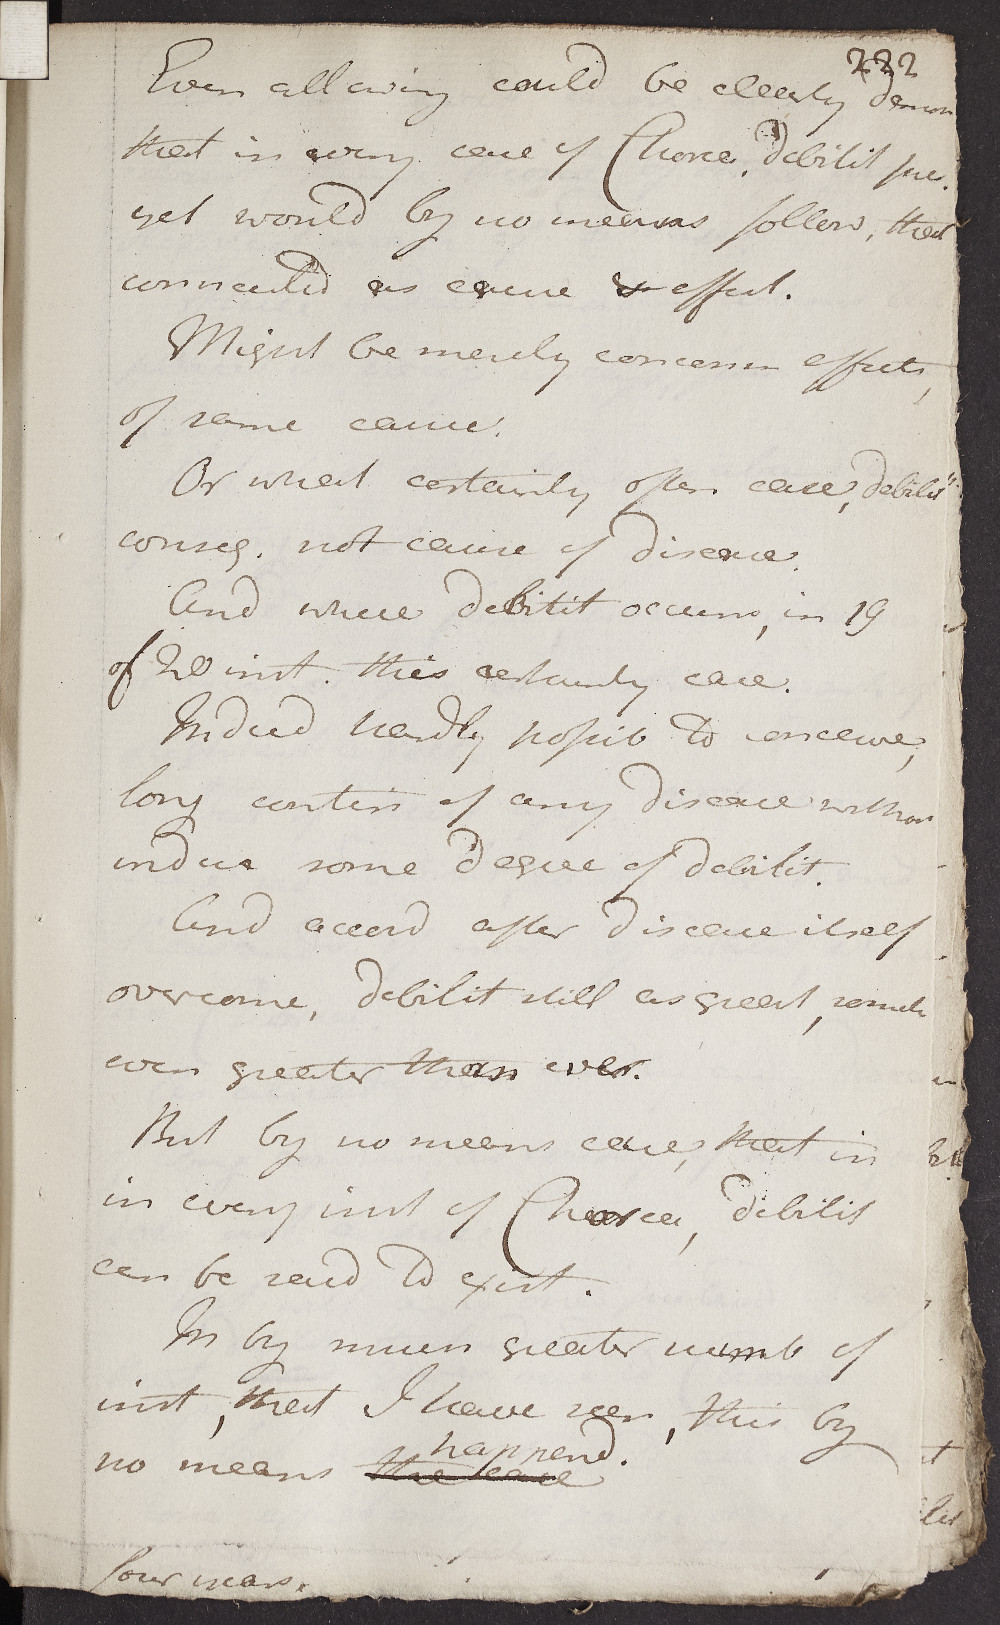 222
Even allowing could be clearly demon
that in every case of Chorea, debilit pre.
yet would by no means follow, that
connected as cause & effect.
Might be merely concom effects,
of same cause.
Or what certainly often case, debilit
conseq. not cause of disease.
And where debilit occurs, in 19
of 20 inst. this certainly case.
Indeed hardly possib to conceive,
long contin of any disease withou
induc some degree of debilit.
And accord after disease itself
overcome, debilit still as great, somet
even greater than ever.
But by no means case, that in
in every inst of Chorea, debilit
can be said to exist.
In by much greater numb of
inst, that I have seen, this by
happend.
no means the case
four years.